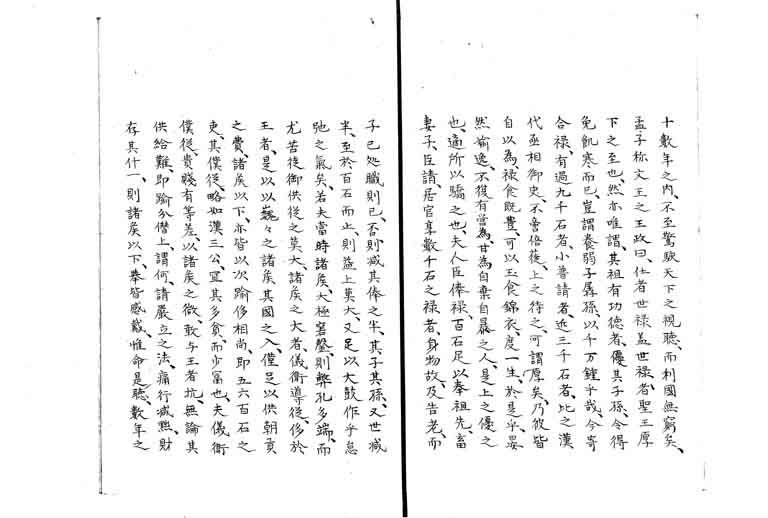 十數年之內、不至驚駭天下之視聽、而利國無窮矣、
孟子称文王之王政曰、仕者世禄、盖世禄者、聖王厚
下之至也、然亦唯謂其祖有功徳者、優其子孫、令得
免飢寒而已、豈謂養弱子孱孫、以千万鍾乎哉、今寄
合禄、有過九千石者、小普請者、近三千石者、比之漢
代丞相御史、不啻倍蓰、上之待之、可謂厚矣、乃彼皆
自以為、禄食既豊、可以玉食錦衣、度一生、於是乎晏
然愉逸、不復有営為、甘為自棄自暴之人、是上之優之
也、適所以驕之也、夫人臣俸禄、百石足以奉祖先、畜
妻子、臣請、居官享數千石之禄者、身物故、及告老、而
子已処職則已、否則減其俸之半、其子其孫、又世減
半、至於百石而止、則益上莫大、又足以大鼓作乎怠
弛之氣矣、若夫當時諸矦、大極窘罄、則弊孔多端、而
尤苦從御供從之莫大、諸矦之大者、儀衛導從、侈於
王者、是以以巍々之諸矦、其國之入、僅足以供朝貢
之費、諸矦以下、亦皆以次踰侈相尚、即五六百石之
吏、其僕從、略如漢三公、宜其多貧、而少冨也、夫儀衛
僕從、貴賤有等差、以諸矦之微、敢与王者抗、無論其
供給難、即踰分僭上、謂何、請嚴立之法、痛行減黜、財
存其什一、則諸矦以下、舉皆感戴、惟命是聴、數年之